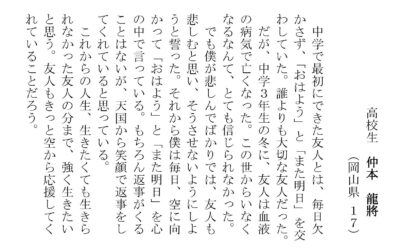 高校生 仲本 龍將
（岡山県 17）
中学で最初にできた友人とは、毎日欠
かさず、「おはよう」と「また明日」を交
わしていた。誰よりも大切な友人だった。
だが、中学３年生の冬に、友人は血液
の病気で亡くなった。この世からいなく
なるなんて、とても信じられなかった。
でも僕が悲しんでばかりでは、友人も
悲しむと思い、そうさせないようにしよ
うと誓った。それから僕は毎日、空に向
かって「おはよう」と「また明日」を心
の中で言っている。もちろん返事がくる
ことはないが、天国から笑顔で返事をし
てくれていると思っている。
これからの人生、生きたくても生きら
れなかった友人の分まで、強く生きたい
と思う。友人もきっと空から応援してく
れていることだろう。